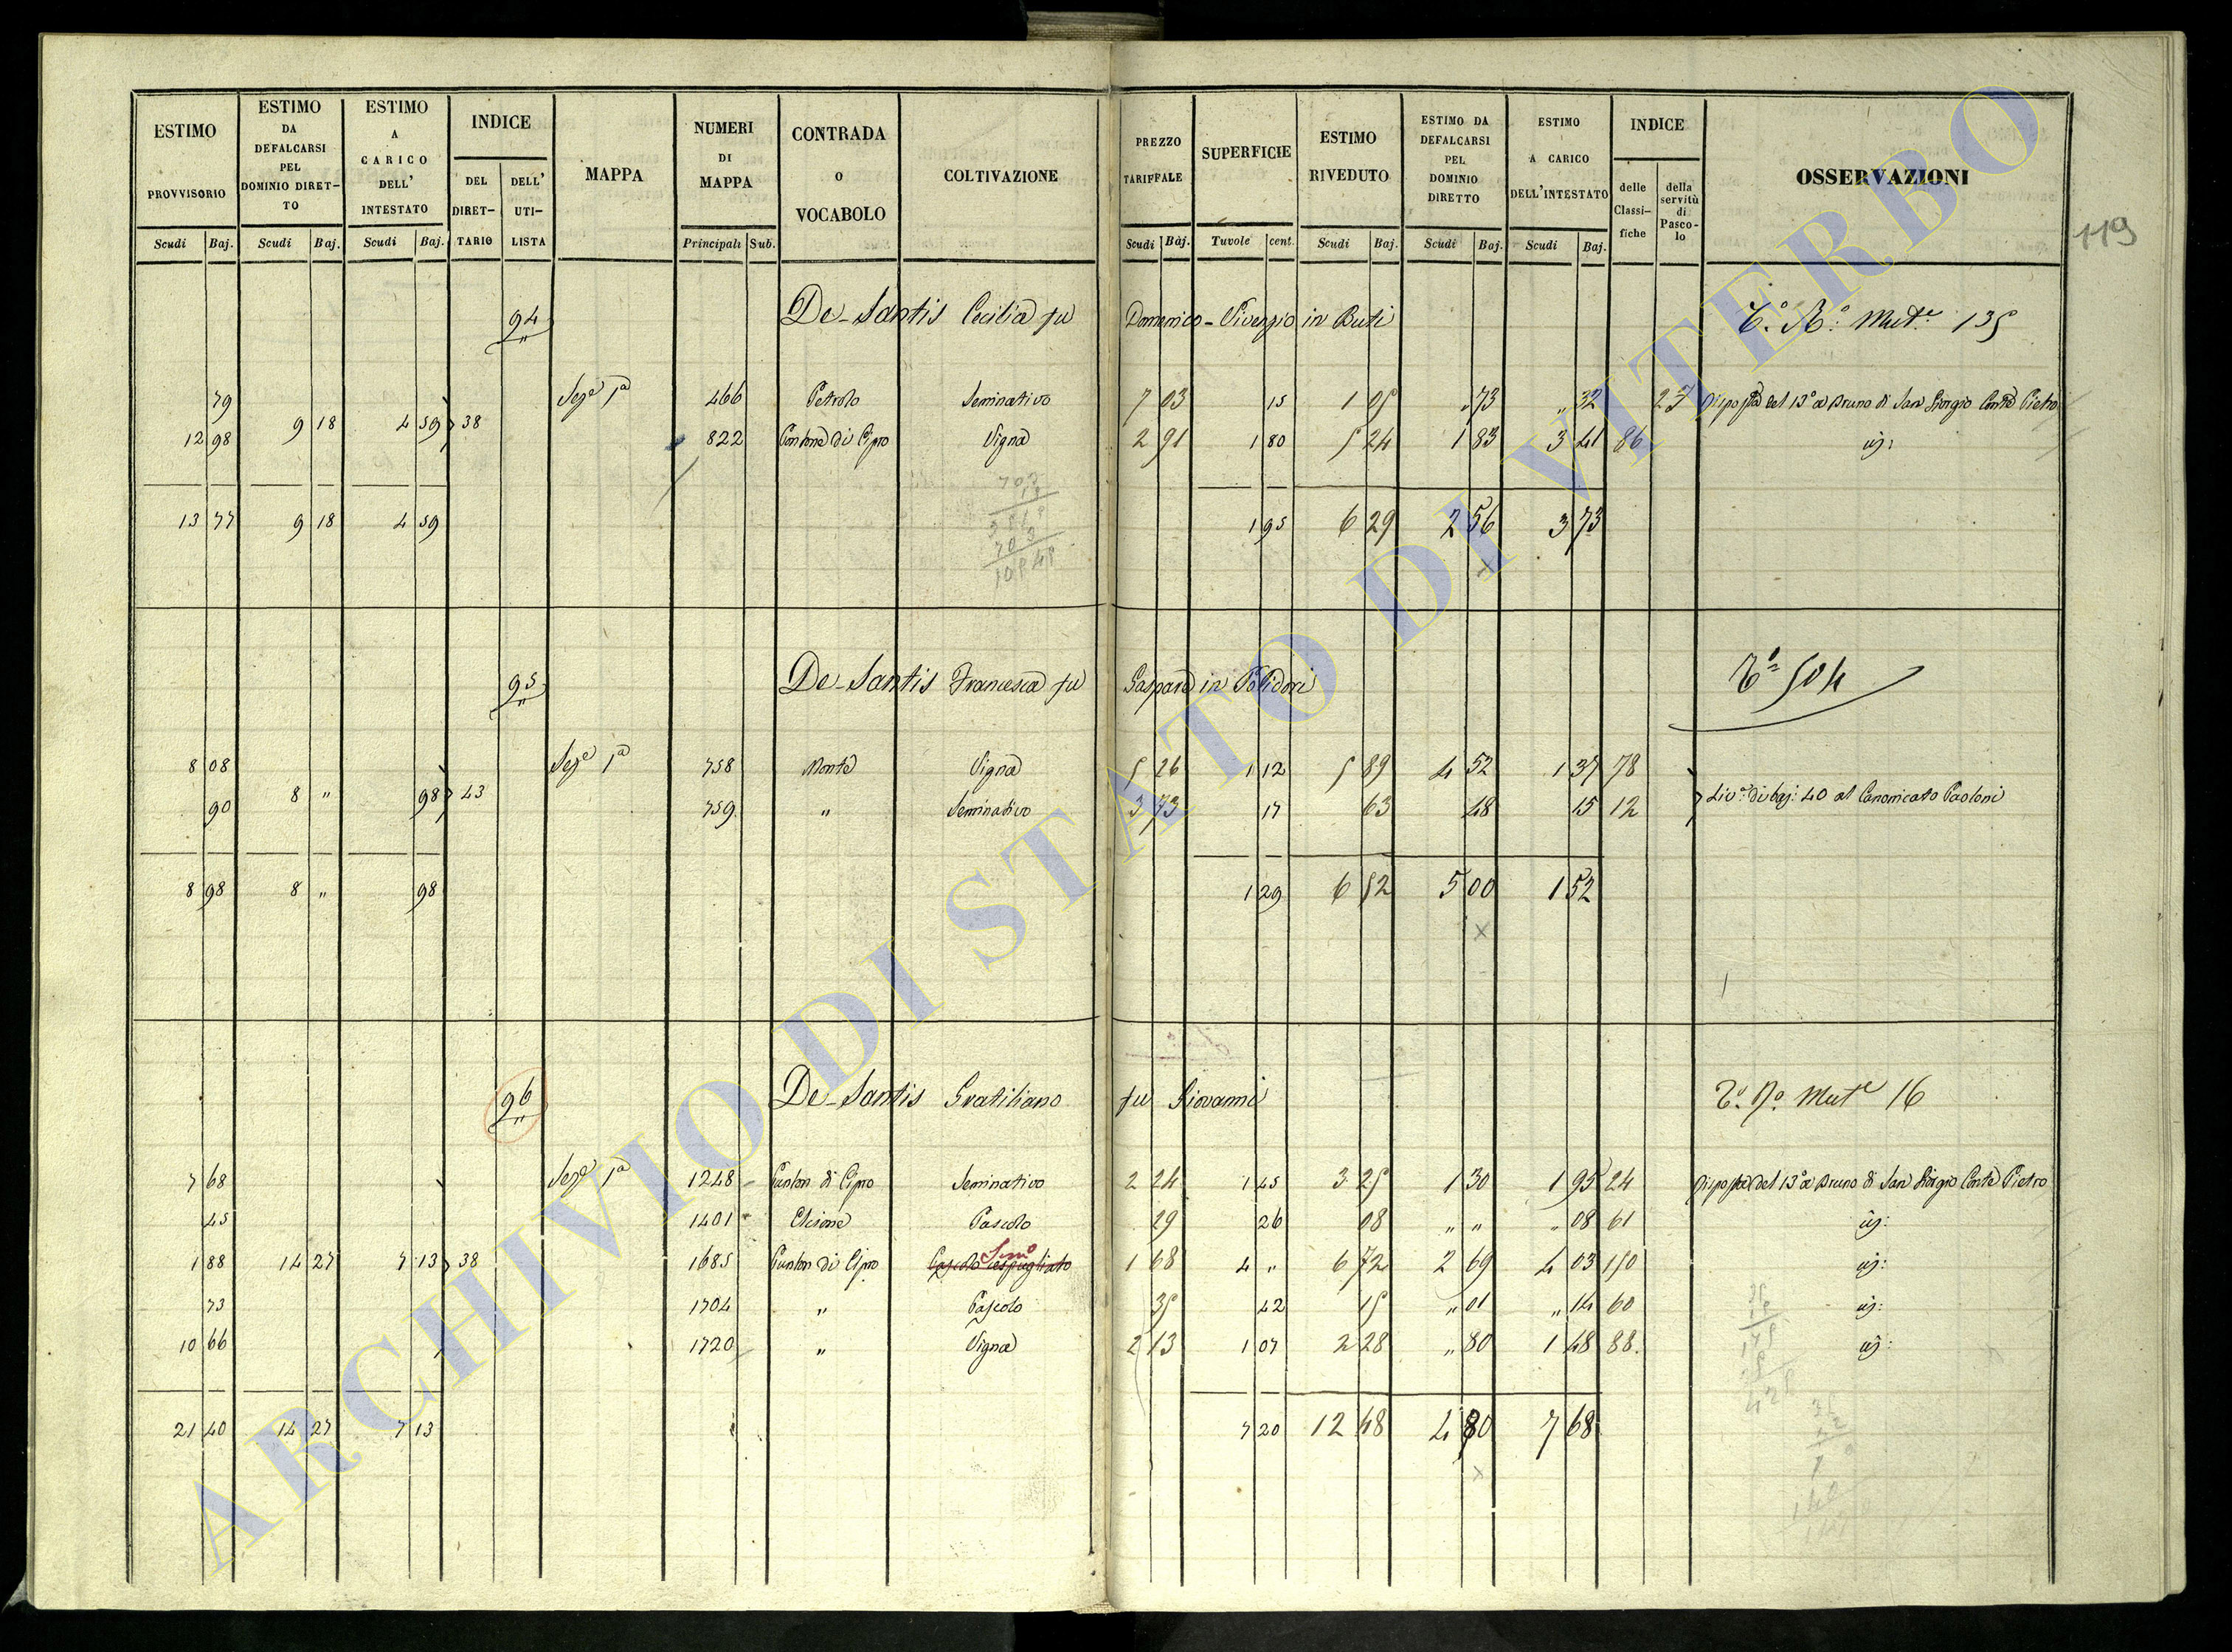 ESTIMO PROVVISORIO | ESTIMO DA DEFALCARSI PEL DOMINIO DIRETTO | ESTIMO A CARICO DELL' INTESTATO | INDICE | MAPPA | NUMERI DI MAPPA | CONTRADA O VOCABOLO | COLTIVAZIONE | PREZZO TARIFFALE | SUPERFICIE | ESTIMO RIVEDUTO | ESTIMO DA DEFALCARSI PEL DOMINIO DIRETTO | ESTIMO A CARICO DELL'INTESTATO | INDICE | OSSERVAZIONI
DEL DIRETTARIO | DELL' UTILISTA | delle Classifiche | della servitù di Pascolo
Scudi | Baj. | Scudi | Baj. | Scudi | Baj. | Principali | Sub. | Scudi | Baj. | Tavole | cent. | Scudi | Baj. | Scudi | Baj. | Scudi | Baj.
119
94 De-Santis Cecilia fu Domenico - Vivenzio in Buti Mut.e 135
79 Sez.e 1a 466 Petrolo Seminativo 7 03 15 1 05 " 73 " 32 27 Risposta del 13° a Bruno di San Giorgio Conte Pietro
9 18 4 59 38
12 98 822 Cantone di Cipro Vigna 2 91 1 80 5 24 1 83 3 41 86
13 77 9 18 4 59 1 95 6 29 2 56 3 73
703
15
703
10545
95 De-Santis Francesca fu Gaspare in Polidori 504
8 08 Sez.e 1a 758 Monte Vigna 5 26 1 12 5 89 4 52 1 37 78
8 " 98 43 Liv.o di baj: 40 al Canonicato Paoloni
90 759 " Seminativo 3 73 17 63 48 15 12
8 98 8 " 98 1 29 6 52 5 00 1 52
x
96 De-Santis Gratiliano fu Giovanni Mut.e 16
7 68 Sez.e 1a 1248 Canton di Cipro Seminativo 2 24 1 45 3 25 1 30 1 95 24 Risposta del 13° a Bruno di San Giorgio Conte Pietro
45 1401 Pascolo 29 26 08 " " " 08 61
1 88 14 27 7 13 38 1685 Canton di Cipro Pascolo cespugliato Sem.o 1 68 4 " 6 72 2 69 4 03 150
73 1704 " Pascolo 35 42 15 " 01 " 14 60
10 66 1720 " Vigna 2 13 1 07 2 28 " 80 1 48 88
21 40 14 27 7 13 7 20 12 48 4 80 7 68
x
ARCHIVIO DI STATO DI VITERBO